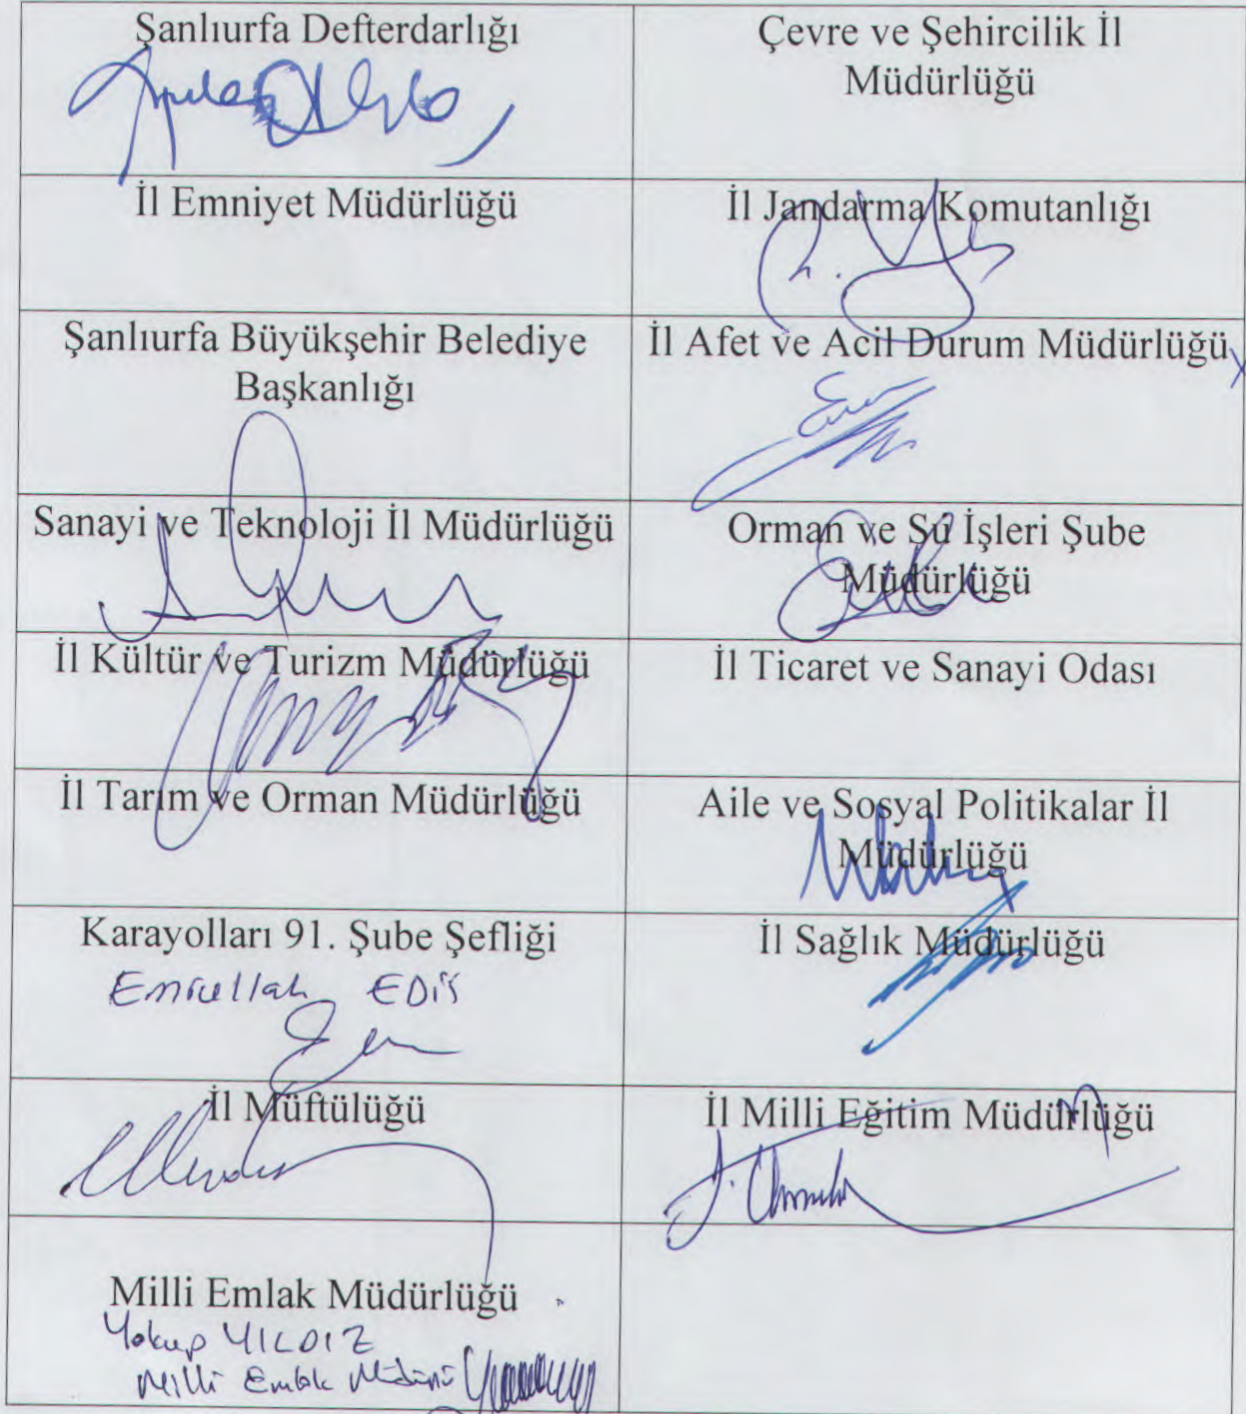 Şanlıurfa Defterdarlığı
Çevre ve Şehircilik İl
Müdürlüğü
İl Emniyet Müdürlüğü
İl Jandarma Komutanlığı
Şanlıurfa Büyükşehir Belediye
Başkanlığı
İl Afet ve Acil Durum Müdürlüğü
Sanayi ve Teknoloji İl Müdürlüğü
Orman ve Su İşleri Şube
Müdürlüğü
İl Kültür ve Turizm Müdürlüğü
İl Ticaret ve Sanayi Odası
İl Tarım ve Orman Müdürlüğü
Aile ve Sosyal Politikalar İl
Müdürlüğü
Karayolları 91. Şube Şefliği
Emrullah EDİS
İl Sağlık Müdürlüğü
İl Müftülüğü
İl Milli Eğitim Müdürlüğü
Milli Emlak Müdürlüğü
Yakup YILDIZ
Milli Emlak Müdürü